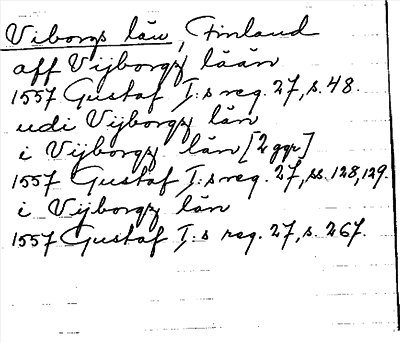 Viborgs län, Finland
aff Vijborgz lään
1557 Gustaf I:s reg. 27, s. 48.
udi Vijborgz län
i Vijborgz län [2 ggr]
1557 Gustaf I:s reg. 27, ss. 128, 129.
i Vijborgz län
1557 Gustaf I:s reg. 27, s. 267.